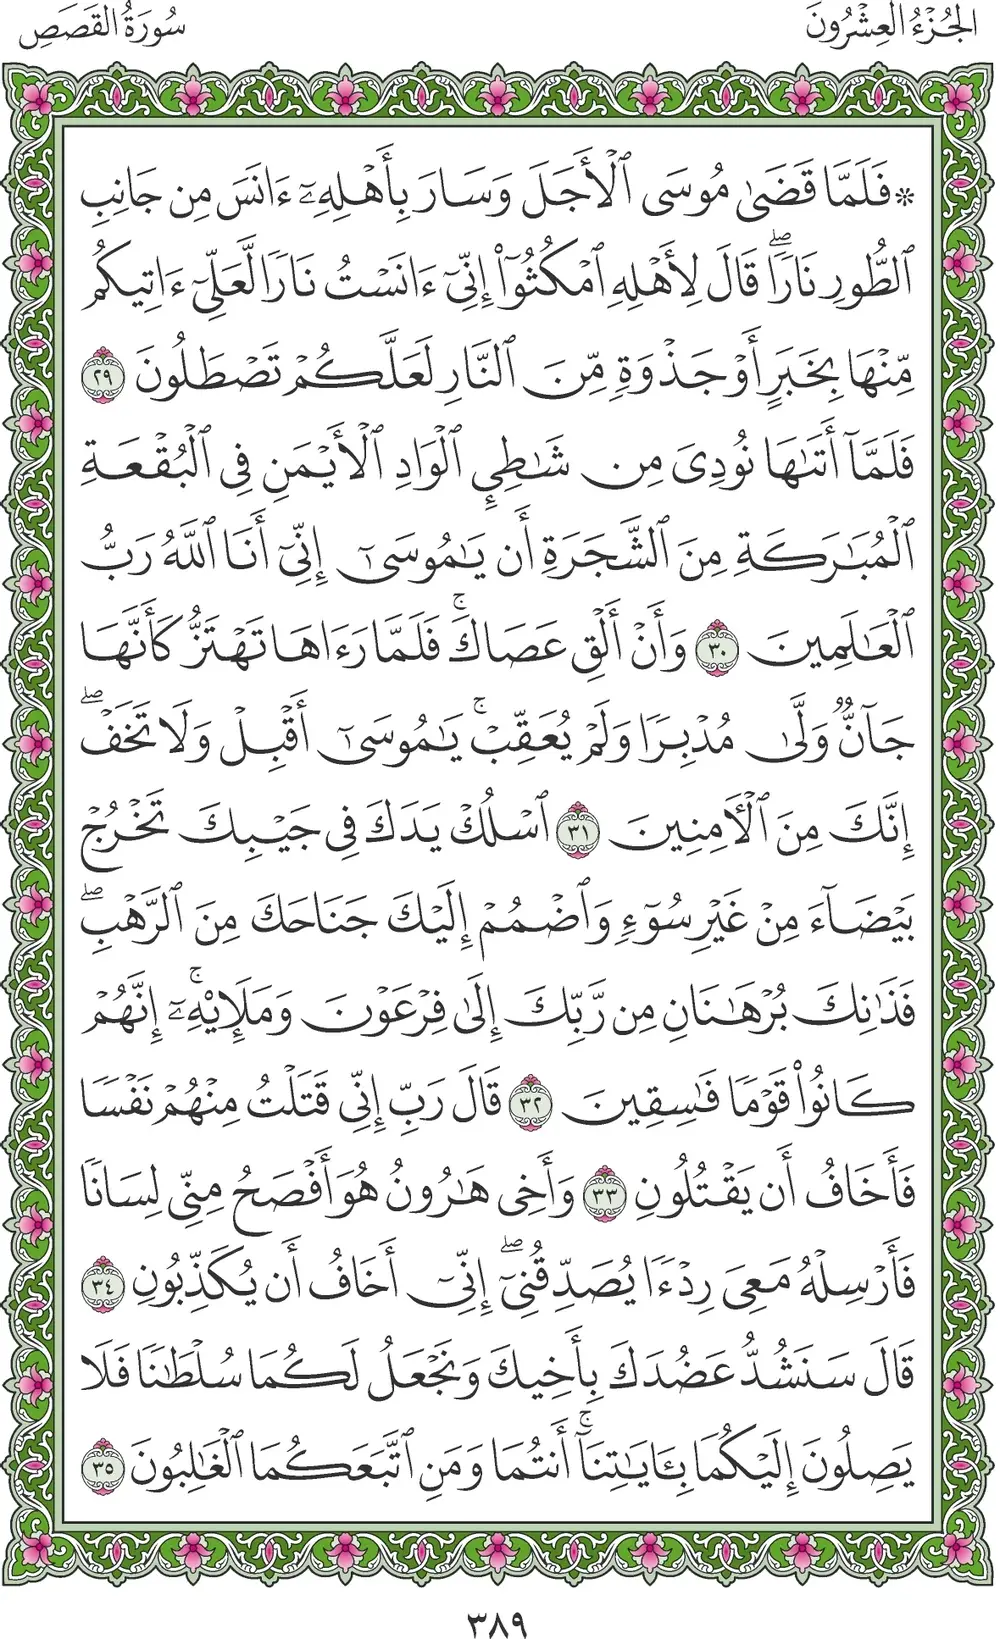 الجُزْءُ العِشْرُونَ
سُورَةُ القَصَصِ
۞ فَلَمَّا قَضَىٰ مُوسَى ٱلْأَجَلَ وَسَارَ بِأَهْلِهِۦٓ ءَانَسَ مِن جَانِبِ
ٱلطُّورِ نَارًاۖ قَالَ لِأَهْلِهِ ٱمْكُثُوٓاْ إِنِّيٓ ءَانَسْتُ نَارًا لَّعَلِّيٓ ءَاتِيكُم
مِّنْهَا بِخَبَرٍ أَوْ جَذْوَةٍ مِّنَ ٱلنَّارِ لَعَلَّكُمْ تَصْطَلُونَ ٢٩
فَلَمَّآ أَتَىٰهَا نُودِيَ مِن شَٰطِيِٕ ٱلْوَادِ ٱلْأَيْمَنِ فِي ٱلْبُقْعَةِ
ٱلْمُبَٰرَكَةِ مِنَ ٱلشَّجَرَةِ أَن يَٰمُوسَىٰٓ إِنِّيٓ أَنَا ٱللَّهُ رَبُّ
ٱلْعَٰلَمِينَ ٣٠ وَأَنْ أَلْقِ عَصَاكَۚ فَلَمَّا رَءَاهَا تَهْتَزُّ كَأَنَّهَا
جَآنٌّ وَلَّىٰ مُدْبِرًا وَلَمْ يُعَقِّبْۚ يَٰمُوسَىٰٓ أَقْبِلْ وَلَا تَخَفْۖ
إِنَّكَ مِنَ ٱلْأٓمِنِينَ ٣١ ٱسْلُكْ يَدَكَ فِي جَيْبِكَ تَخْرُجْ
بَيْضَآءَ مِنْ غَيْرِ سُوٓءٍ وَٱضْمُمْ إِلَيْكَ جَنَاحَكَ مِنَ ٱلرَّهْبِۖ
فَذَٰنِكَ بُرْهَٰنَانِ مِن رَّبِّكَ إِلَىٰ فِرْعَوْنَ وَمَلَإِيْهِۦٓۚ إِنَّهُمْ
كَانُواْ قَوْمًا فَٰسِقِينَ ٣٢ قَالَ رَبِّ إِنِّي قَتَلْتُ مِنْهُمْ نَفْسًا
فَأَخَافُ أَن يَقْتُلُونِ ٣٣ وَأَخِي هَٰرُونُ هُوَ أَفْصَحُ مِنِّي لِسَانًا
فَأَرْسِلْهُ مَعِيَ رِدْءًا يُصَدِّقُنِيٓۖ إِنِّيٓ أَخَافُ أَن يُكَذِّبُونِ ٣٤
قَالَ سَنَشُدُّ عَضُدَكَ بِأَخِيكَ وَنَجْعَلُ لَكُمَا سُلْطَٰنًا فَلَا
يَصِلُونَ إِلَيْكُمَا بِـَٔايَٰتِنَآۚ أَنتُمَا وَمَنِ ٱتَّبَعَكُمَا ٱلْغَٰلِبُونَ ٣٥
٣٨٩